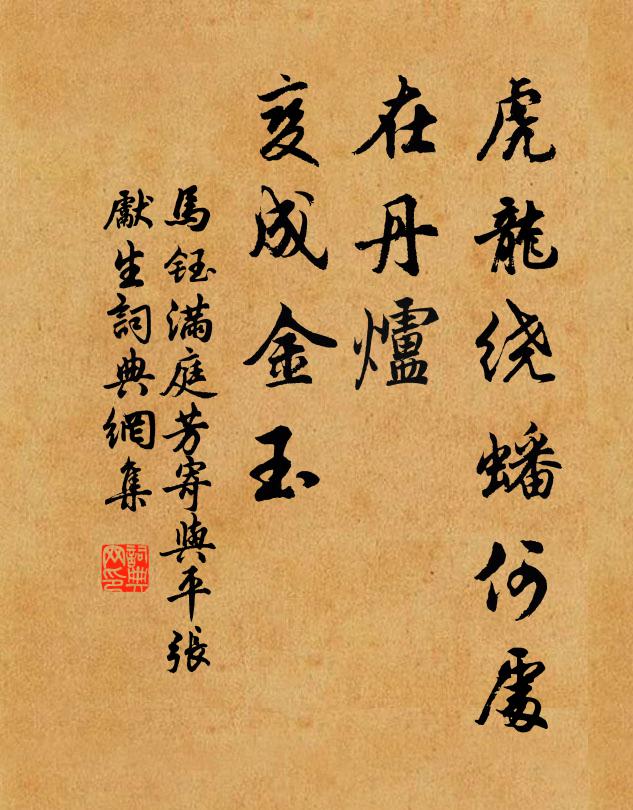 虎龍绕蟠何處
在丹爐
变成金玉
馬鈺满庭芳寄與平張
獻生詞典網集
詞典
网印